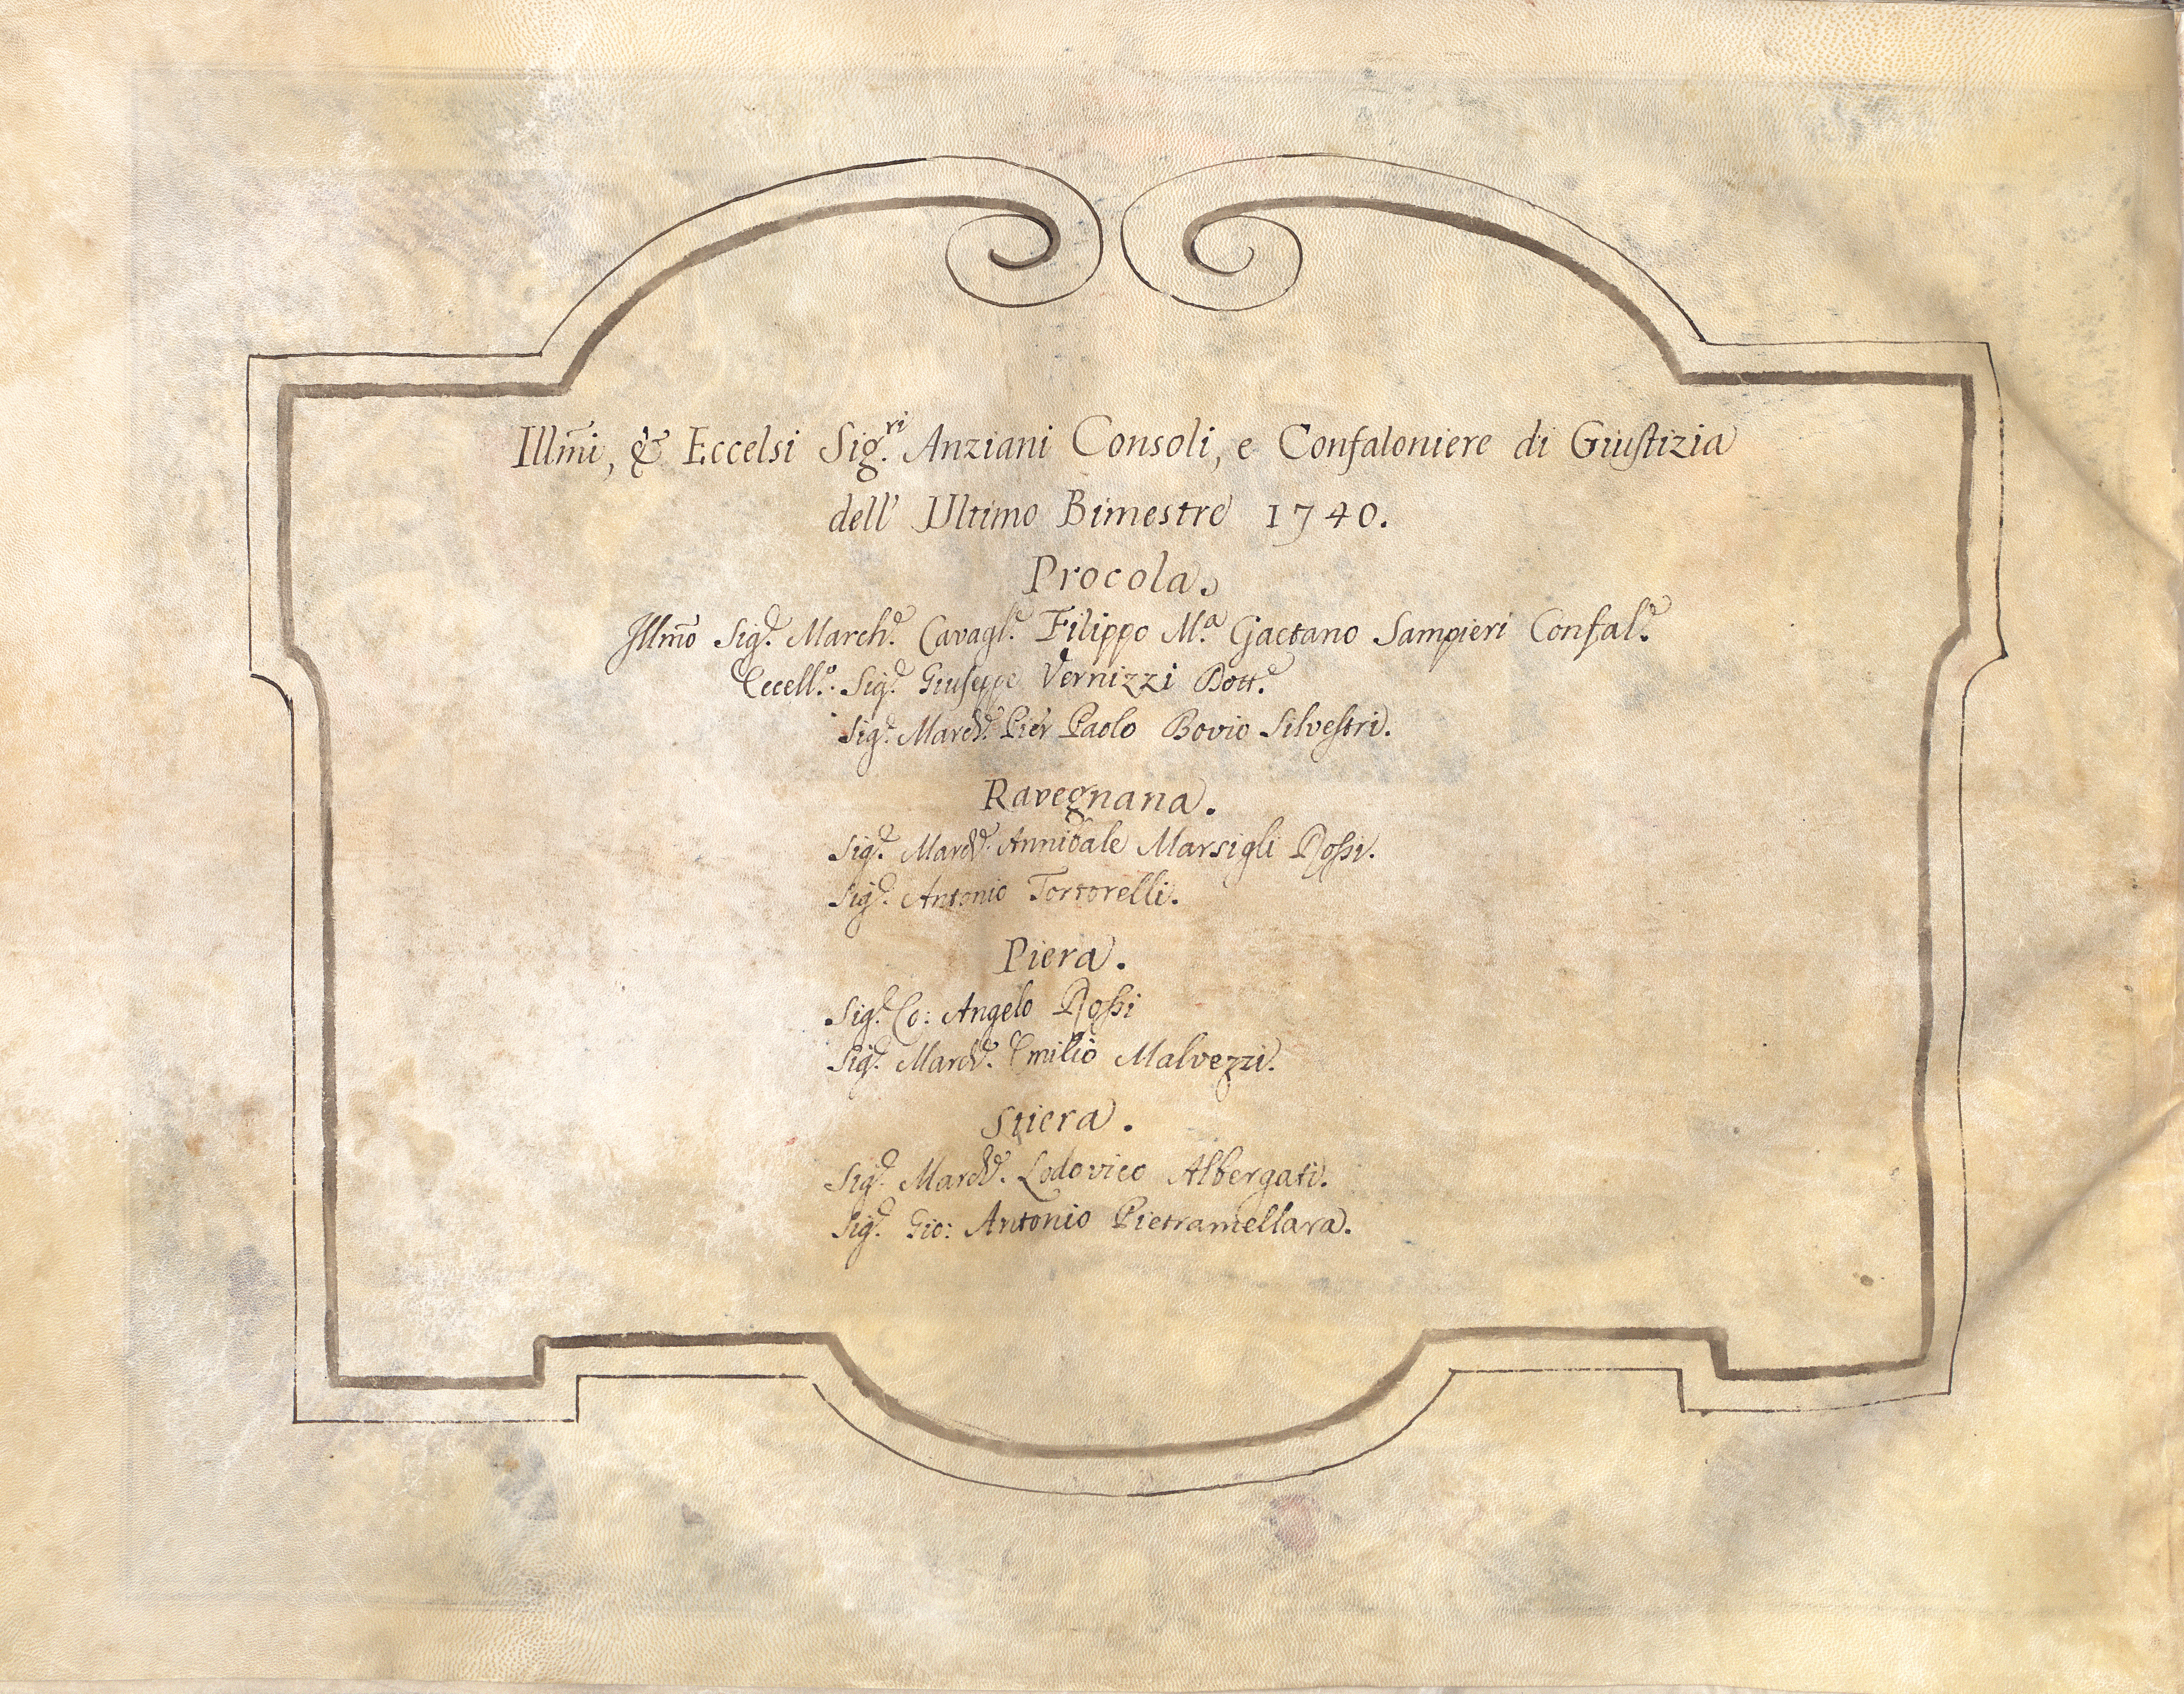 Illm̃i, & Eccelsi Sig.ri Anziani Consoli, e Confaloniere di Giustizia
dell' Ultimo Bimestre 1740.
Procola.
Illm̃o Sig.r March.e Cavagl.e Filippo M.a Gaetano Sampieri Confal.e
Eccell.o Sig.r Giuseppe Vernizzi Dott.e
Sig.r March.e Pier Paolo Bovio Silvestri.
Ravegnana.
Sig.r March.e Annibale Marsigli Rossi.
Sig.r Antonio Tortorelli.
Piera.
Sig.r Co: Angelo Rossi
Sig.r March.e Emilio Malvezzi.
Stiera.
Sig.r March.e Lodovico Albergati.
Sig.r Gio: Antonio Pietramellara.